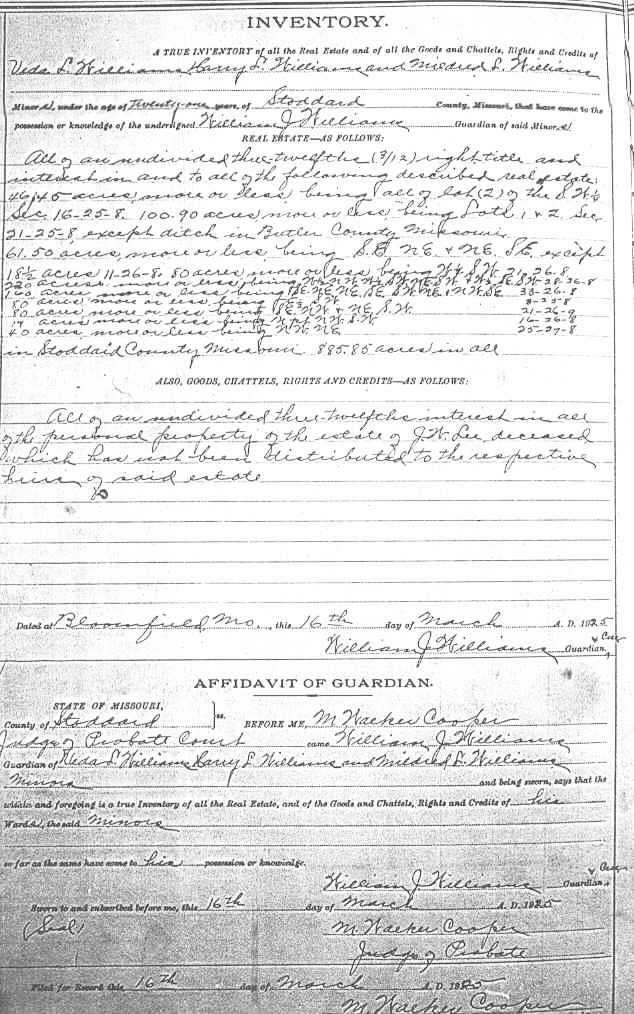 INVENTORY.
A TRUE INVENTORY of all the Real Estate and of all the Goods and Chattels, Rights and Credits of
Veda L. Williams Harry L. Williams and Mildred L. Williams
Minors, under the age of Twenty-one years, of Stoddard County, Missouri, that have come to the
possession or knowledge of the undersigned William J Williams Guardian of said Minors
REAL ESTATE—AS FOLLOWS:
All of an undivided three-twelfths (3/12) right title and
interest in and to all of the following described real estate:
46.45 acres, more or less, being all of lot (2) of the S.W.
Sec. 16-25-8. 100.90 acres more or less being Lots 1 & 2. Sec.
21-25-8, except ditch in Butler County Missouri.
61.50 acres, more or less, being S.E. N.E. & N.E. S.E. except
18½ acres 11-26-8. 80 acres more or less being W½ S.W. 21-26-8
220 acres more or less being 28-26-8
160 acres more or less being 33-26-8
80 acres more or less being S.W.
80 acres, more or less being & N.E. S.W. 21-26-9
acres more or less being S.W. 16-26-8
40 acres, more or less being N.E. 25-27-8
in Stoddard County Missouri 885.85 acres in all
ALSO, GOODS, CHATTELS, RIGHTS AND CREDITS—AS FOLLOWS:
All of an undivided three-twelfths interest in all
of the personal property of the estate of J.W. Lee, deceased
which has not been distributed to the respective
heirs of said estate
Dated at Bloomfield Mo., this 16th day of March A. D. 1925
William J Williams Guardian,
AFFIDAVIT OF GUARDIAN.
STATE OF MISSOURI,
County of Stoddard } ss. BEFORE ME, M Walker Cooper
Judge of Probate Court came William J Williams
Guardian of Veda L. Williams, Harry L Williams and Mildred L. Williams
Minors and being sworn, says that the
within and foregoing is a true Inventory of all the Real Estate, and of the Goods and Chattels, Rights and Credits of his
Wards, the said Minors
so far as the same have come to his possession or knowledge.
William J Williams Guardian,
Sworn to and subscribed before me, this 16th day of March A. D. 1925
(Seal) M Walker Cooper
Judge of Probate
Filed for Record this 16th day of March A. D. 1925
M Walker Cooper